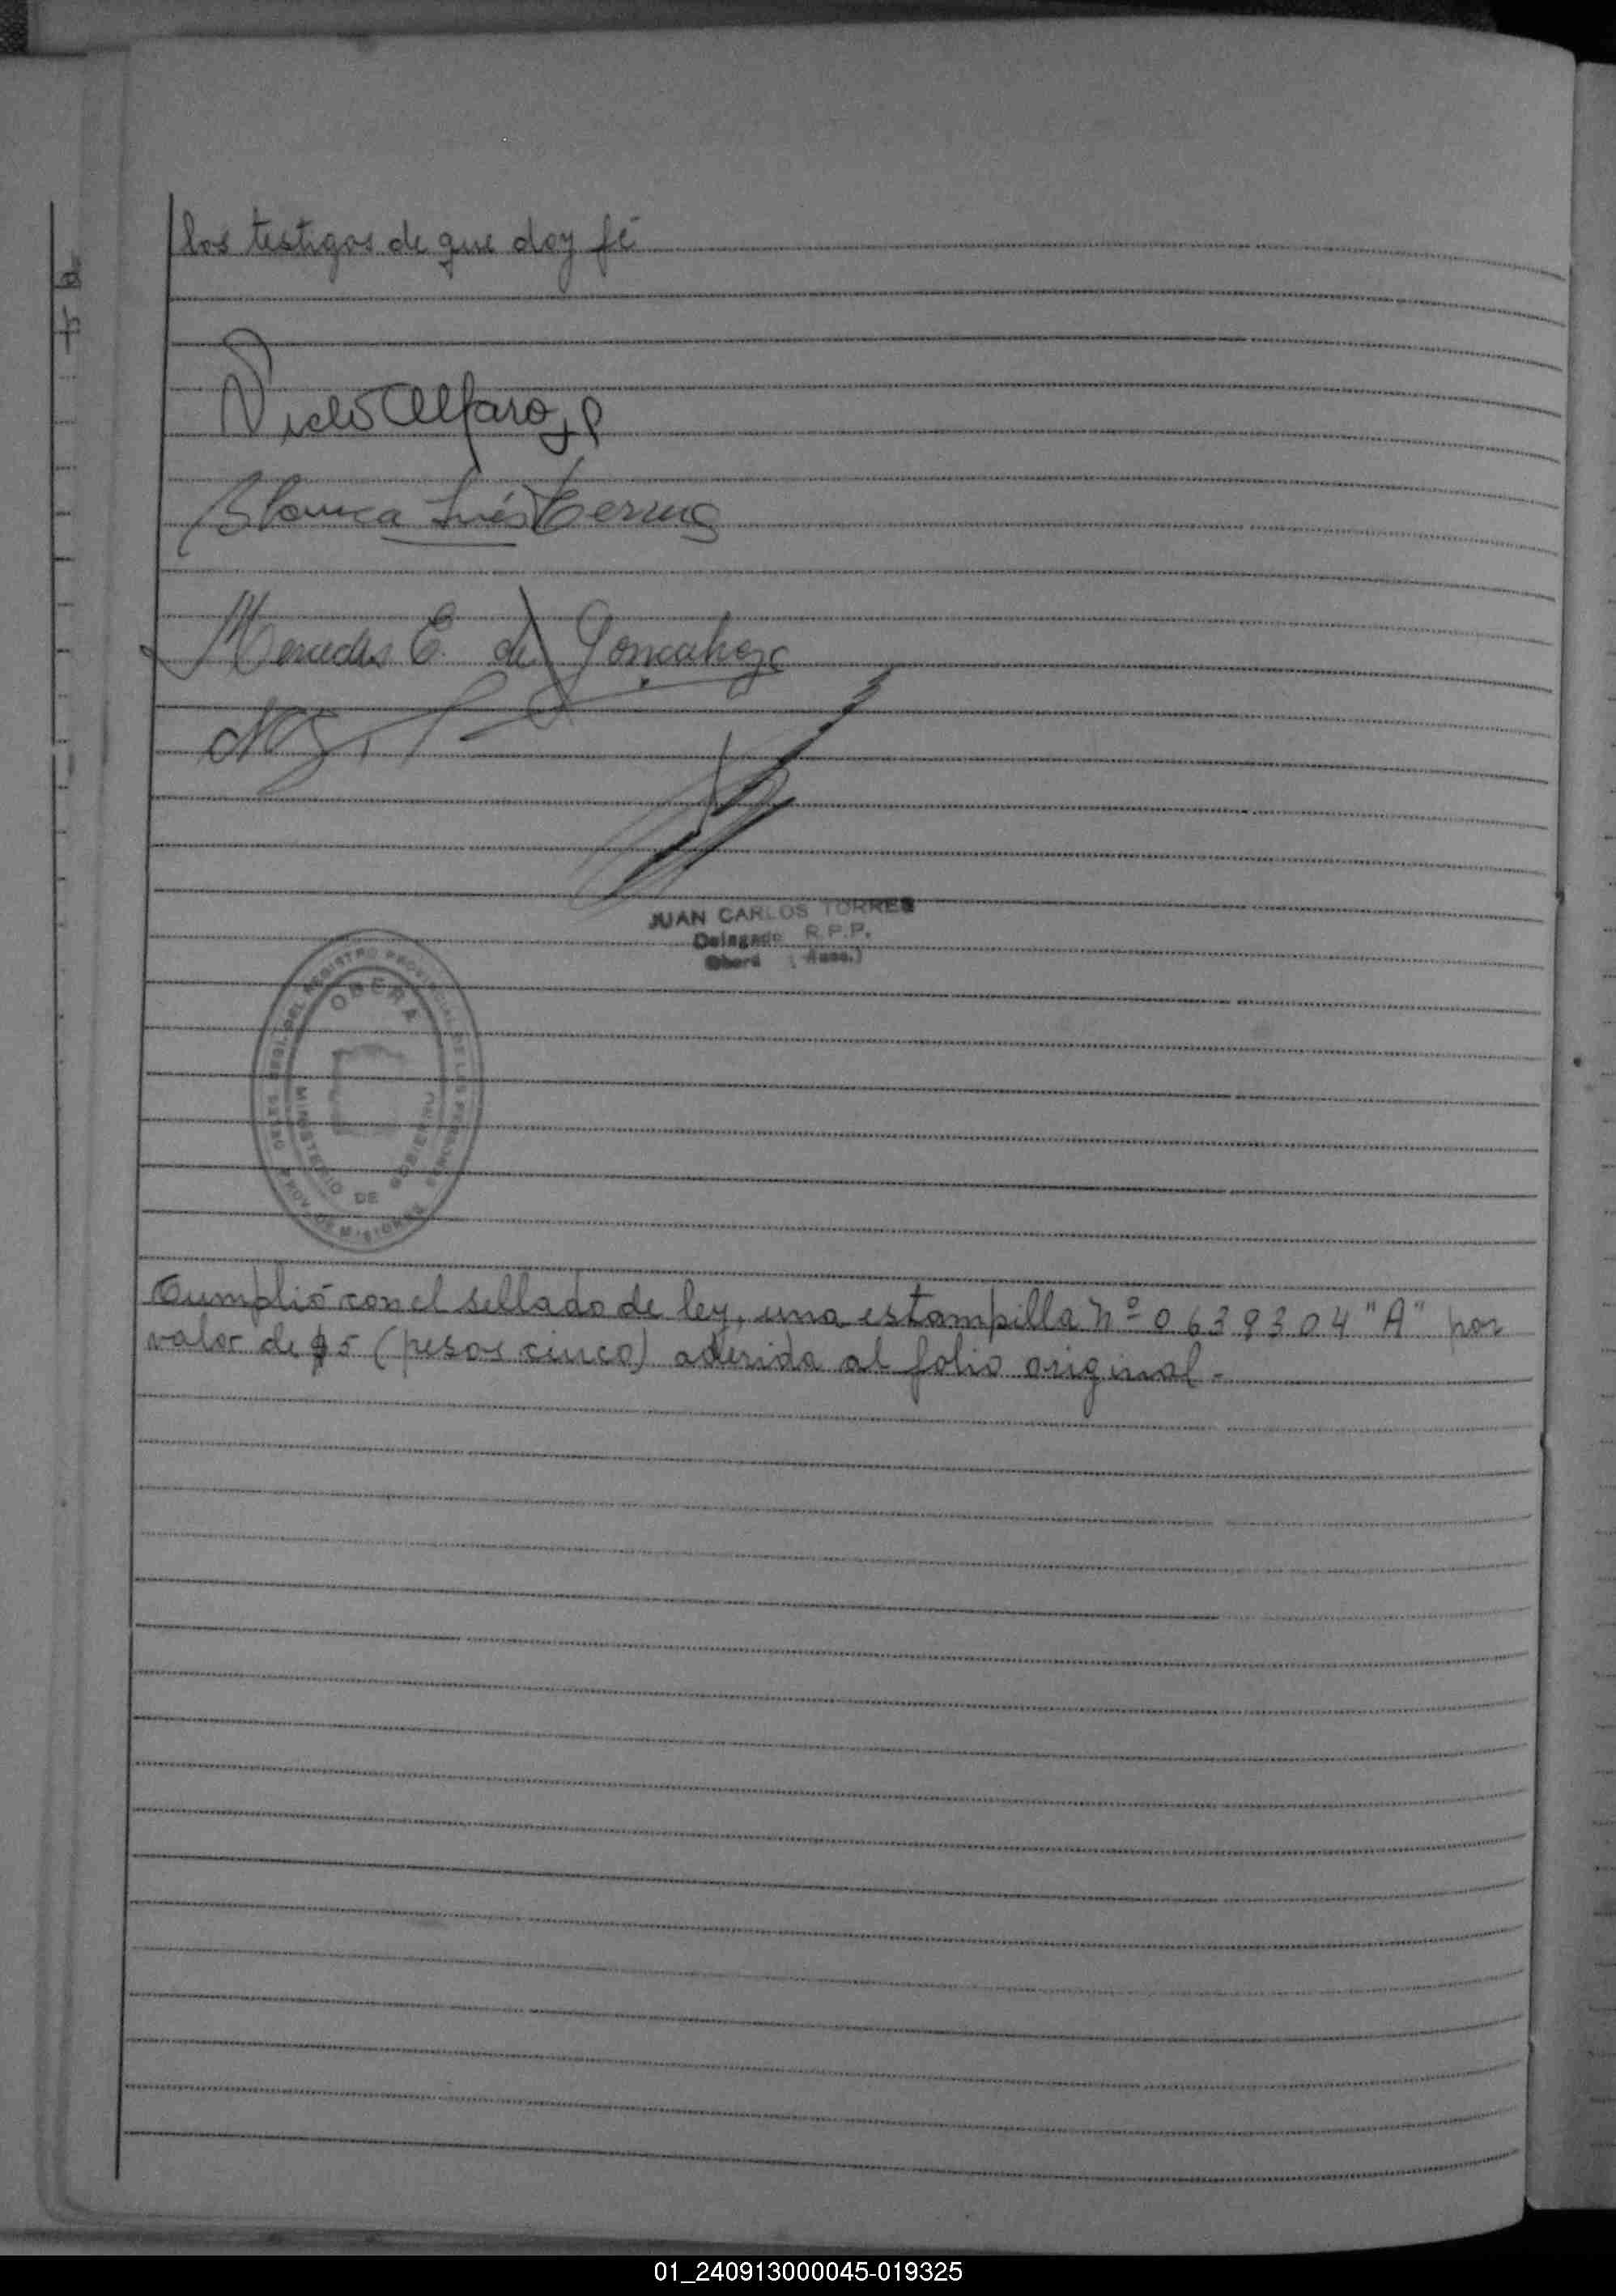 los testigos de que doy fé
Alfaro
Blanca Inés
Mercedes E. de
JUAN CARLOS TORRES
Delegado R.P.P.
Oberá
DEL REGISTRO PROVINCIAL DE LAS PERSONAS
OBERA
MINISTERIO DE GOBIERNO
PROV. DE MISIONES
Cumplió con el sellado de ley, una estampilla Nº 0639304 "A" por
valor de $5 (pesos cinco) aderida al folio original.-
01_240913000045-019325